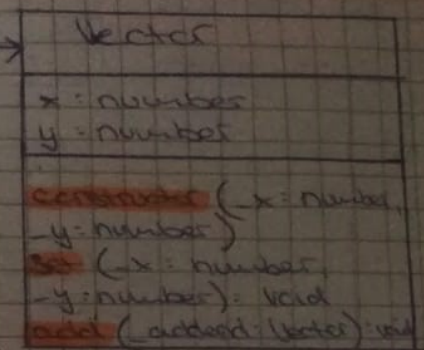 Vector
x : number
y : number
constructor (_x : number,
_y : number)
set (_x : number,
_y : number) : void
add (_addend : Vector) : void